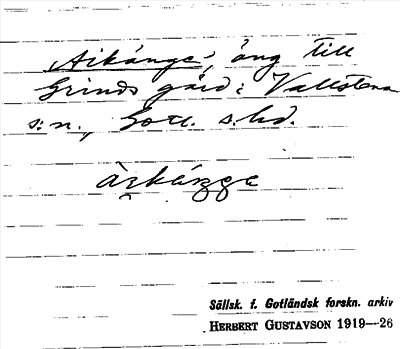 Aikänge, äng till
Grinds gård i Vallstena
s:n., Gotl. s:hd.
Sällsk. f. Gotländsk forskn. arkiv
HERBERT GUSTAVSON 1919—26